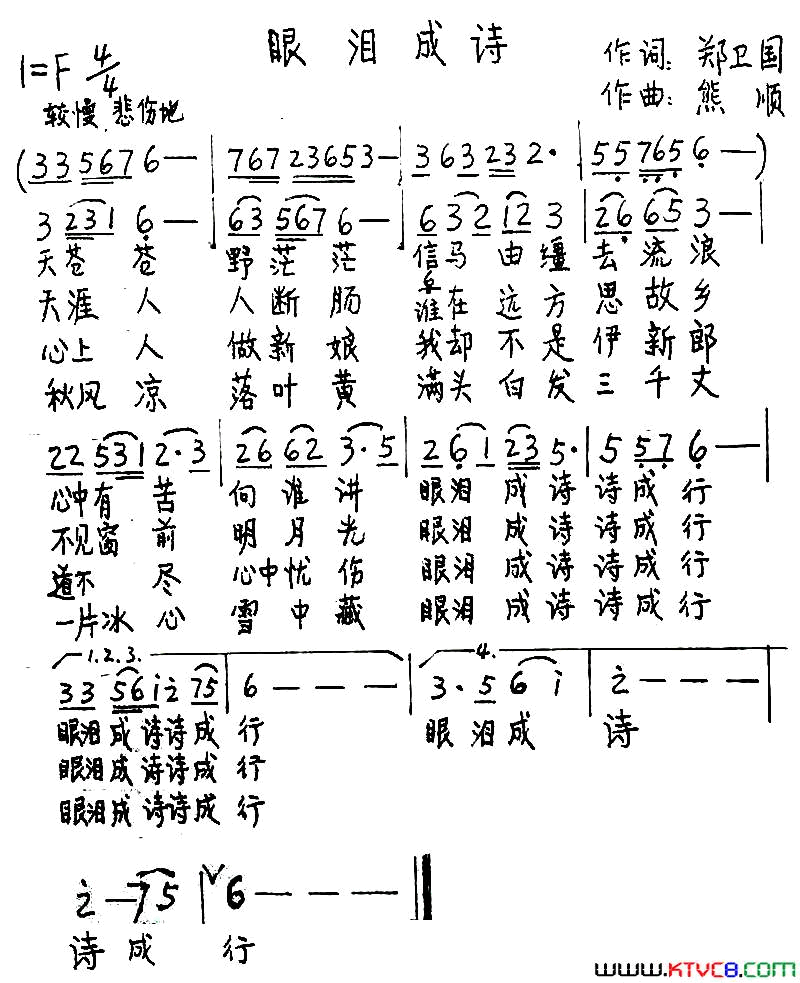 眼泪成诗
1=F 4/4
作词: 郑卫国
较慢 悲伤地
作曲: 熊顺
(33 5676— | 767 23653— | 363 232· | 55 7656—)
3 2316— | 63 5676— | 632 123 | 26 653—
天苍苍 野茫茫 信马由缰去流浪
天涯人 人断肠 谁在远方思故乡
心上人 做新娘 我却不是伊新郎
秋风凉 落叶黄 满头白发三千丈
22 531 2·3 | 26 62 3·5 | 261 235· | 5 576——
心中有苦 向谁讲 眼泪成诗诗成行
不见窗前 明月光 眼泪成诗诗成行
道不尽 心中忧伤 眼泪成诗诗成行
一片冰心 雪中藏 眼泪成诗诗成行
1.2.3. 4.
33 56i 2 75 | 6——— | 3·56i | 2———
眼泪成诗诗成行 眼泪成诗
眼泪成诗诗成行
眼泪成诗诗成行
2—75 | 6———
诗成行
www.KTVC8.com